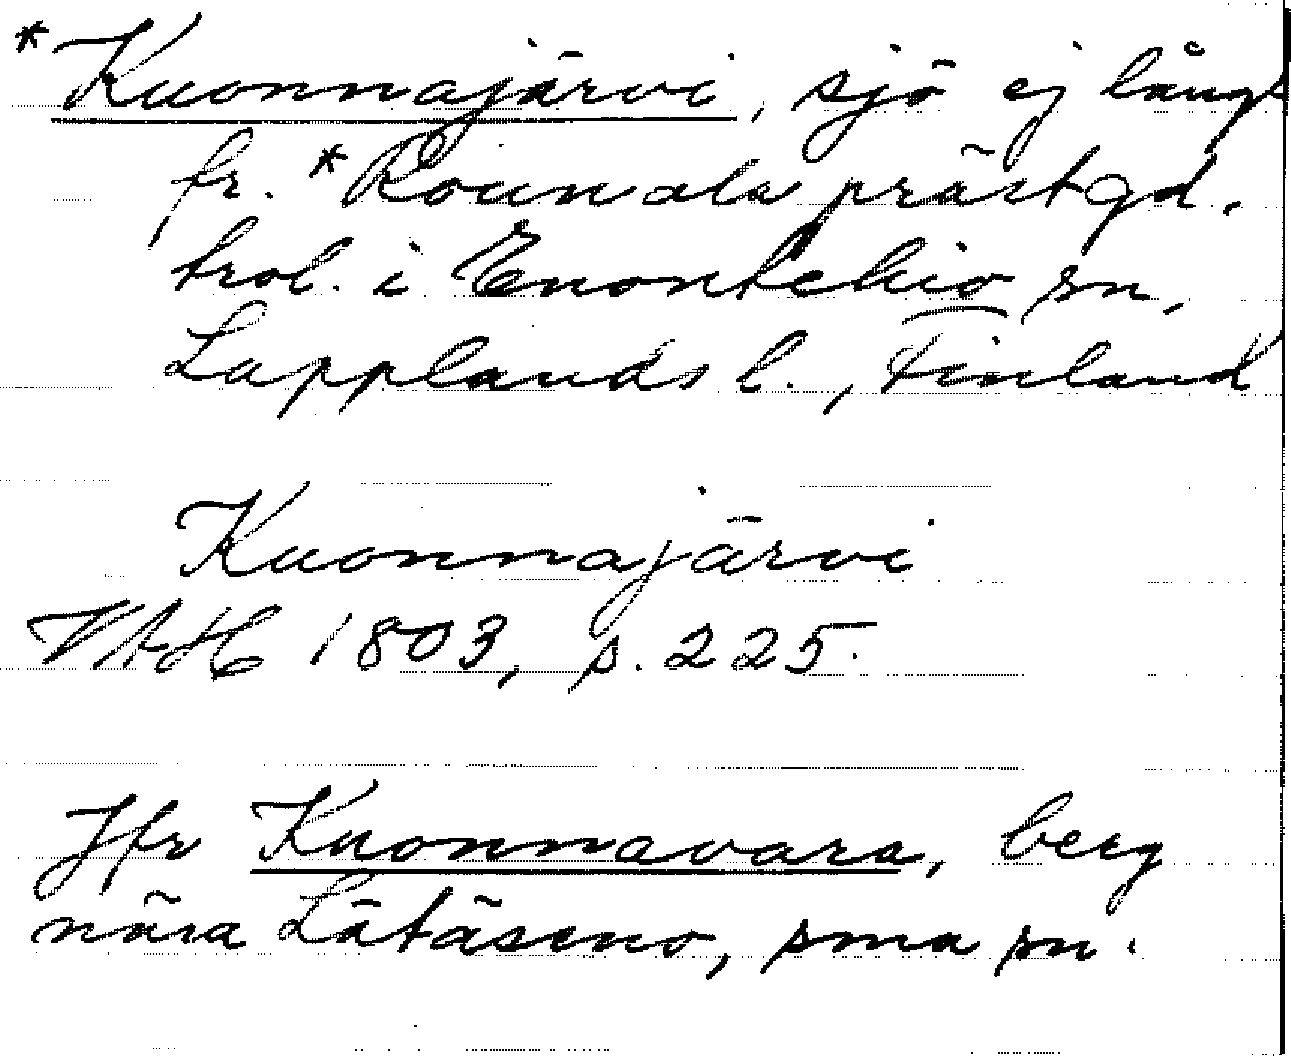 *Kuonnajärvi, sjö ej långt
fr. *Rounala prästgd.
trol. i Enontekiö sn,
Lapplands l., Finland
Kuonnajärvi
VAH 1803, p. 225.
Jfr Kuonnavara, berg
nära Lätäseno, sma sn.